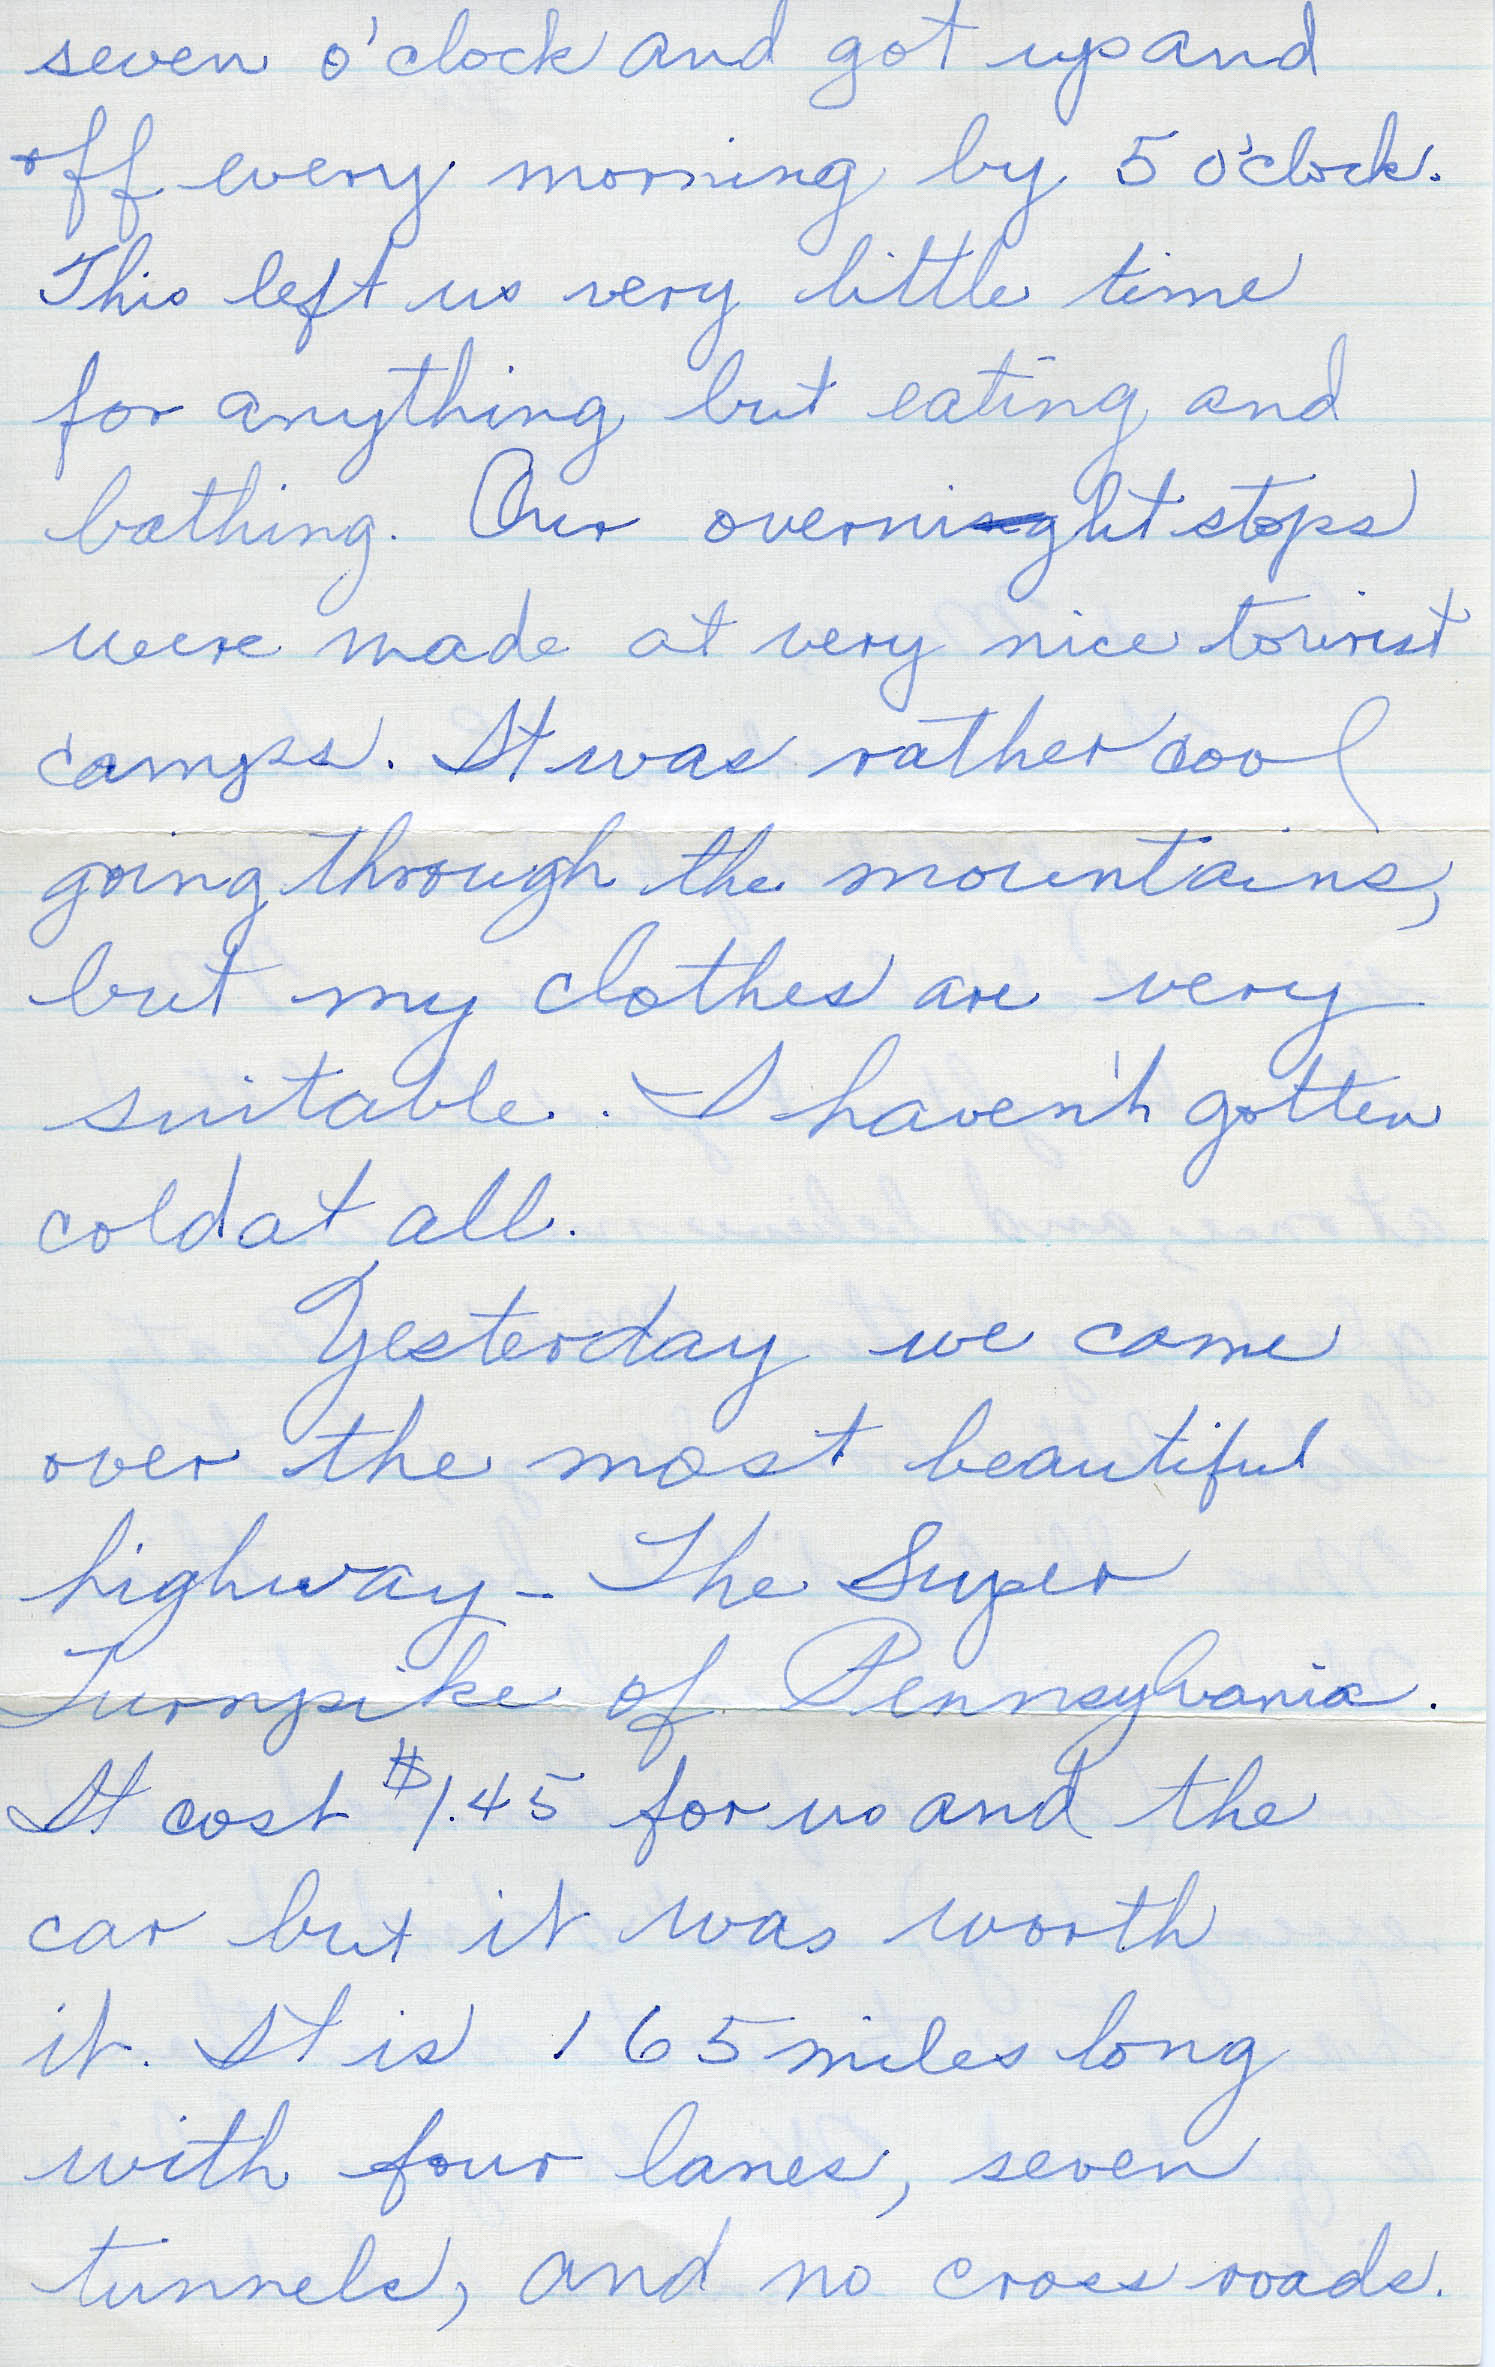 seven o'clock and got up and
off every morning by 5 o'clock.
This left us very little time
for anything but eating and
bathing. Our overnight stops
were made at very nice tourist
camps. It was rather cool
going through the mountains,
but my clothes are very
suitable. I haven't gotten
cold at all.
Yesterday we came
over the most beautiful
highway - The Super
Turnpike of Pennsylvania.
It cost $1.45 for us and the
car but it was worth
it. It is 165 miles long
with four lanes, seven
tunnels, and no cross roads.